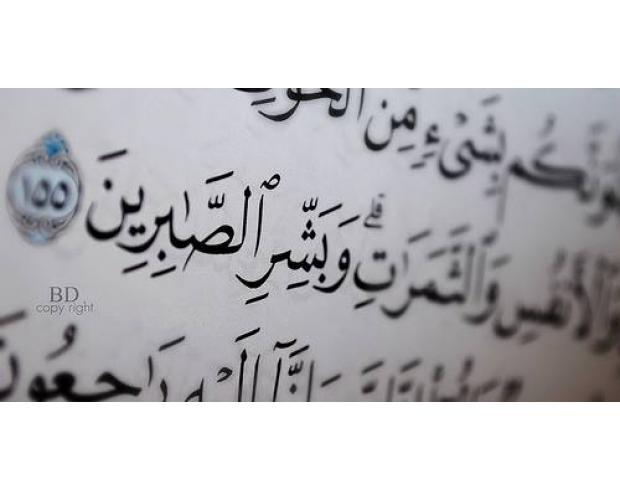 وَلَنَبْلُوَنَّكُم بِشَىْءٍ مِّنَ ٱلْخَوْفِ
وَٱلْأَنفُسِ وَٱلثَّمَرَٰتِ ۗ وَبَشِّرِ ٱلصَّٰبِرِينَ ١٥٥
وَإِنَّآ إِلَيْهِ رَٰجِعُونَ
BD
copy right